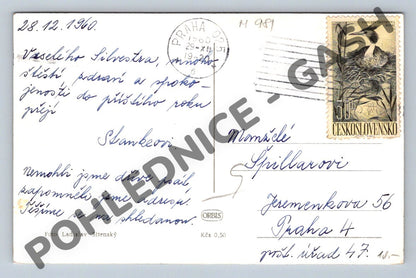 28.12.1960.
M 981
PRAHA
Veselého Silvestra, mnoho
štěstí, zdraví a spoko
jenosti do příštího roku
přejí
Stankovi
Nemohli jsme dříve psát,
zapomněli jsme adresu.
Těšíme se na shledanou.
Foto Ladislav Sitenský
ORBIS
Kčs 0,50
30h
ČESKOSLOVENSKO
Manželé
Špillarovi
Jeremenkova 56
Praha 4
pošt. úřad 47.
POHLEDNICE - GASH